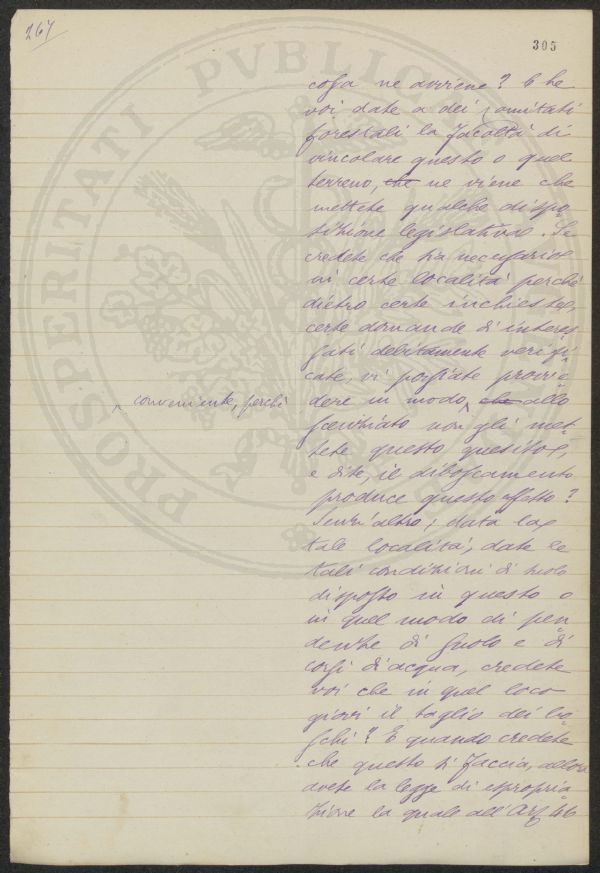 267
305
PROSPERITATI PVBLICAE
cosa ne avviene? Che
voi date a dei Comitati
forestali la facoltà di
vincolare questo o quel
terreno, che ne viene che
mettete qualche dispo
sizione legislativa. Se
credete che sia necessario
in certe località perché
dietro certe inchieste,
certe domande d'interes
sati debitamente verifi
cate, vi possiate provve
dere in modo che allo
conveniente, perchè
scienziato non gli met
tete questo quesito,
e dite, il diboscamento
produce questo effetto?
Senz'altro; data la
tale località, date le
tali condizioni di suolo
disposto in questo o
in quel modo di pen
denze di suolo e di
corsi d'acqua, credete
voi che in quel loco
giovi il taglio dei bo
schi? E quando credete
che questo si faccia, allora
avete la legge di espropria
zione la quale all'Art 46